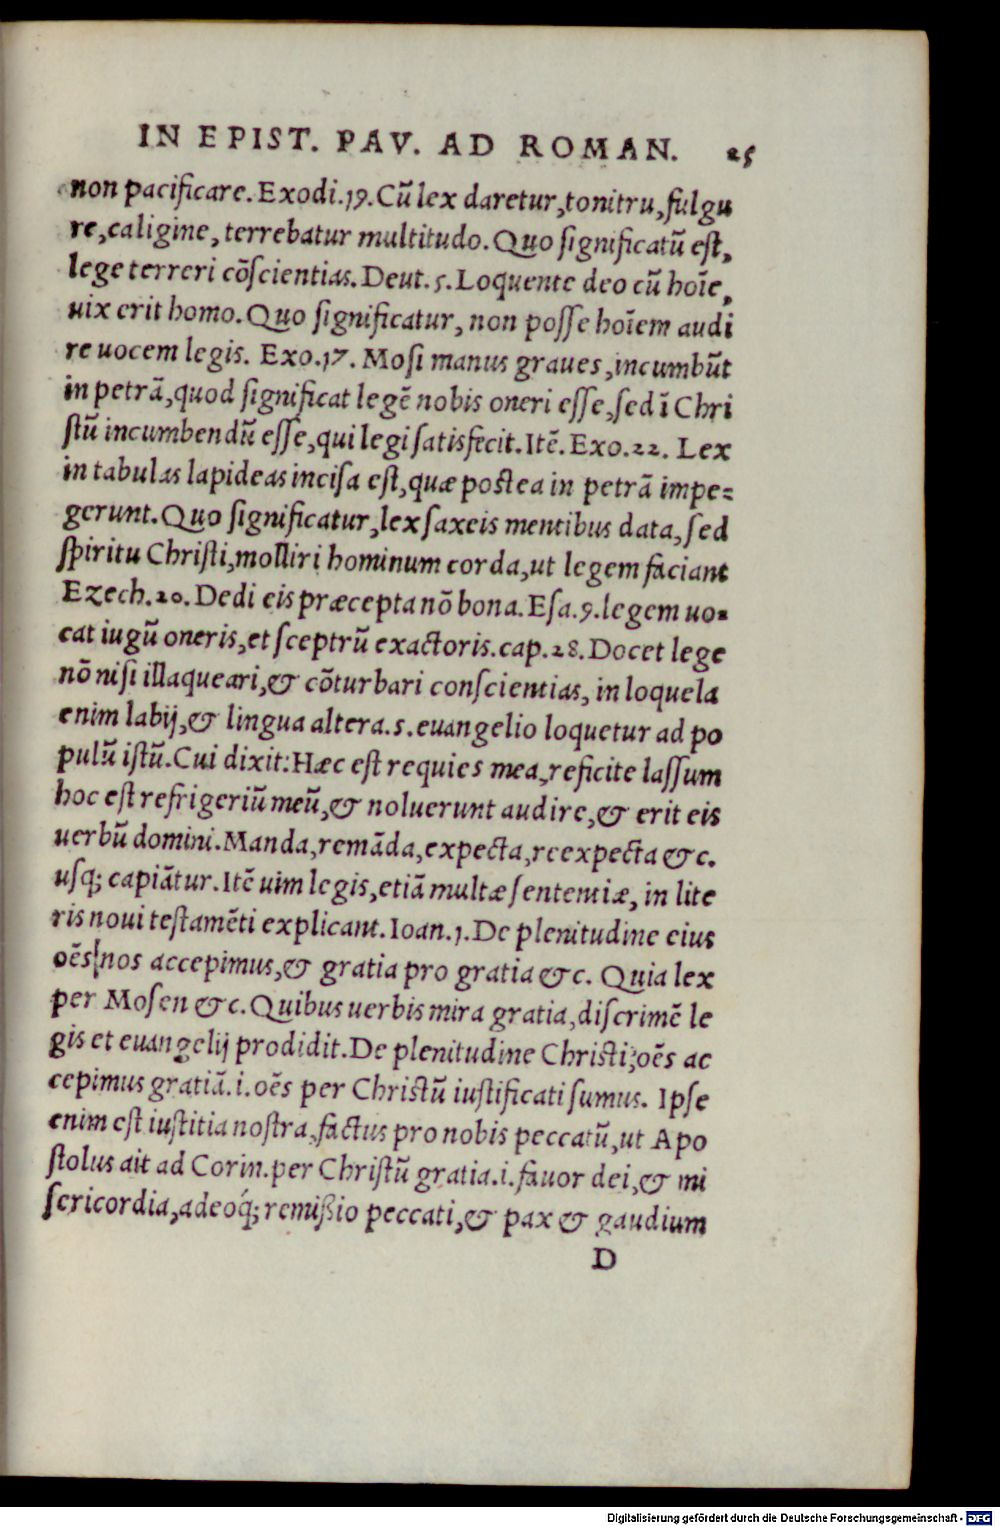 IN EPIST. PAV. AD ROMAN. 25
non pacificare. Exodi.19. Cũ lex daretur, tonitru, fulgu
re, caligine, terrebatur multitudo. Quo significatũ est,
lege terreri cõscientias. Deut.5. Loquente deo cũ hoĩe,
uix erit homo. Quo significatur, non posse hoĩem audi
re uocem legis. Exo.17. Mosi manus graues, incumbũt
in petrã, quod significat legẽ nobis oneri esse, sed ĩ Chri
stũ incumbendũ esse, qui legi satisfecit. Itẽ. Exo.22. Lex
in tabulas lapideas incisa est, quæ postea in petrã impe-
gerunt. Quo significatur, lex saxeis mentibus data, sed
spiritu Christi, molliri hominum corda, ut legem faciant
Ezech.20. Dedi eis præcepta nõ bona. Esa.9. legem uo-
cat iugũ oneris, et sceptrũ exactoris. cap.28. Docet lege
nõ nisi illaqueari, & cõturbari conscientias, in loquela
enim labij, & lingua altera.s. euangelio loquetur ad po
pulũ istũ. Cui dixit: Hæc est requies mea, reficite lassum
hoc est refrigeriũ meũ, & noluerunt audire, & erit eis
uerbũ domini. Manda, remãda, expecta, reexpecta &c.
usq; capiãtur. Itẽ uim legis, etiã multæ sententiæ, in lite
ris noui testamẽti explicant. Ioan.1. De plenitudine eius
oẽs|nos accepimus, & gratia pro gratia &c. Quia lex
per Mosen &c. Quibus uerbis mira gratia, discrimẽ le
gis et euangelij prodidit. De plenitudine Christi, oẽs ac
cepimus gratiã.i. oẽs per Christũ iustificati sumus. Ipse
enim est iustitia nostra, factus pro nobis peccatũ, ut Apo
stolus ait ad Corin. per Christũ gratia.i. fauor dei, & mi
sericordia, adeoq́; remißio peccati, & pax & gaudium
D
Digitalisierung gefördert durch die Deutsche Forschungsgemeinschaft - DFG